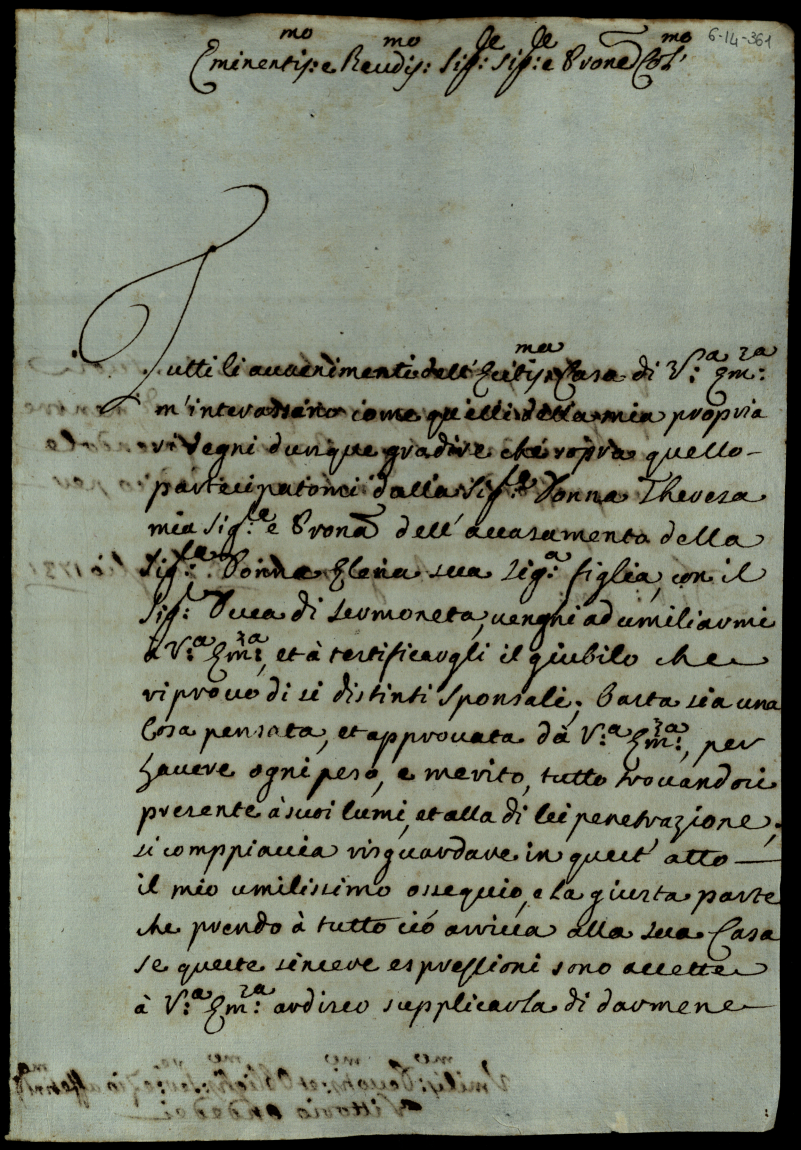 6-14-361
Eminentis:mo e Reudis:mo Sig:re Sig:re e Prone Col:mo
Tutti li auuenimenti dell' Ecc:ma Casa di V:a Em:za
m'interessano come quelli della mia propria
si degni dunque gradire che sopra quello
partecipatomi dalla Sig:ra Donna Theresa
mia Sig:ra e Prona dell' accasamento della
Sig:ra Donna Elena sua Sig:a figlia, con il
Sig:r Duca di Sermoneta, uenghi ad umiliarmi
à V:a Em:za, et à certificargli il giubilo che
ri prouo di si distinti sponsali; basta sia una
Cosa pensata, et approuata dà V:a Em:za, per
hauere ogni peso, e merito, tutto trouandosi
presente à suoi lumi, et alla di lei penetrazione;
si comppiaccia risguardare in quest' atto
il mio umilissimo ossequio, e la giusta parte
che prendo à tutto ciò arriua alla sua Casa
se queste sincere espressioni sono accette
à V:a Em:za ardisco supplicarla di darmene